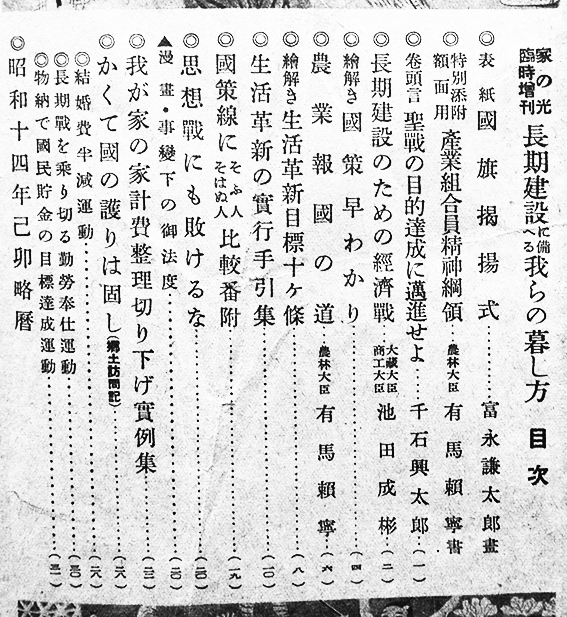 家の光
臨時増刊 長期建設に備へる我らの暮し方 目次
◎表紙 國旗揭揚式……富永謙太郎畫
◎特別添附額面用 產業組合員精神綱領……農林大臣 有馬賴寧書
◎卷頭言 聖戰の目的達成に邁進せよ……千石興太郎…(一)
◎長期建設のための經濟戰……大藏大臣商工大臣 池田成彬…(二)
◎繪解き 國策早わかり……(四)
◎農業報國の道……農林大臣 有馬賴寧…(六)
◎繪解き 生活革新目標十ヶ條……(八)
◎生活革新の實行手引集……(一〇)
◎國策線にそふ人そはぬ人比較番附……(一九)
◎思想戰にも敗けるな……(二〇)
▲漫畫・事變下の御法度……(二〇)
◎我が家の家計費整理切り下げ實例集……(二二)
◎かくて國の護りは固し(鄕土訪問記)……(二六)
◎結婚費半減運動……(二八)
◎長期戰を乘り切る勤勞奉仕運動……(三〇)
◎物納で國民貯金の目標達成運動……(三一)
◎昭和十四年己卯略曆